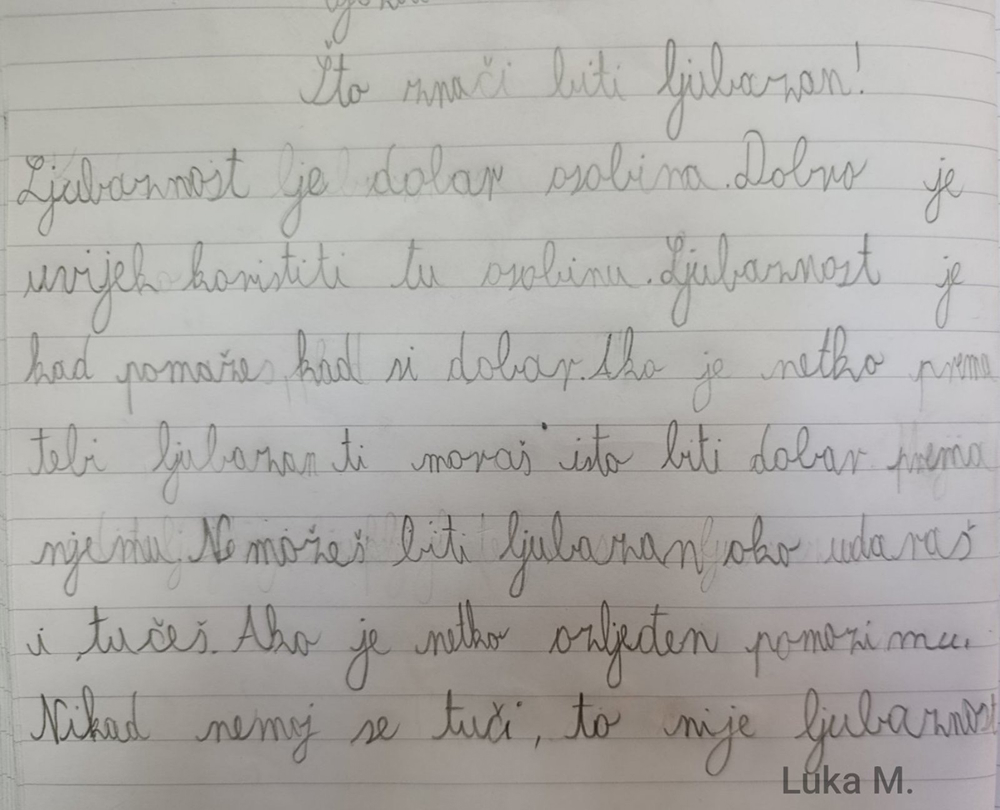 Što znači biti ljubazan!
Ljubaznost je dobar osobina. Dobro je
uvijek koristiti tu osobinu. Ljubaznost je
kad pomaže, kad si dobar. Ako je netko prema
tebi ljubazan ti moraš isto biti dobar prema
njemu. Ne možeš biti ljubazan ako udaraš
i tučeš. Ako je netko ozljeđen pomozi mu.
Nikad nemoj se tući, to nije ljubaznost
Luka M.